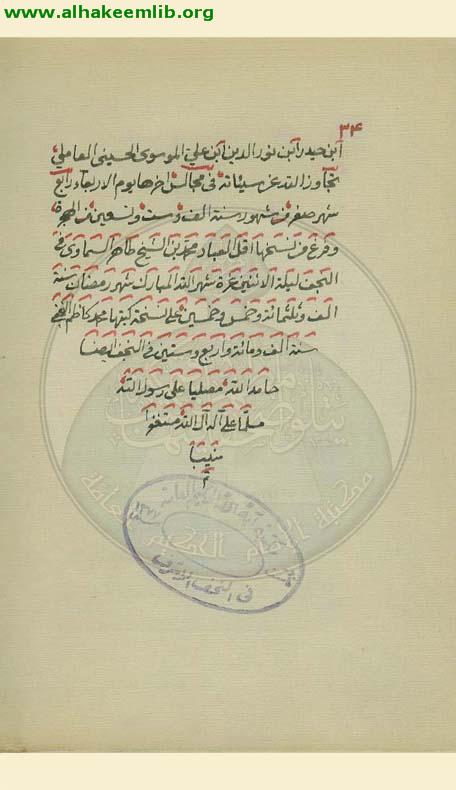 www.alhakeemlib.org
٣٤
ابن حيدر ابن نور الدين ابن علي الموسوي الحسيني العاملي
تجاوز الله عن سيئاته في مجالس اخرها يوم الاربعاء رابع
شهر صفر من شهور سنة الف وست وتسعين من الهجرة
وفرغ من نسخها اقل العباد محمد بن الشيخ طاهر السماوي في
النجف ليلة الاثنين غرة شهر الله المبارك شهر رمضان سنة
الف وثلثمائة وخمس وخمسين على نسخة كتبها محمد كاظم النجفي
سنة الف ومائة واربع وستين في النجف ايضا
حامدا لله مصليا على رسول الله
مسلما على آله آل الله مستغفرا
منيبا
مكتبة الإمام الحكيم العامة
مكتبة آية الله الحكيم العامة
١٣٧٧
في النجف الاشرف